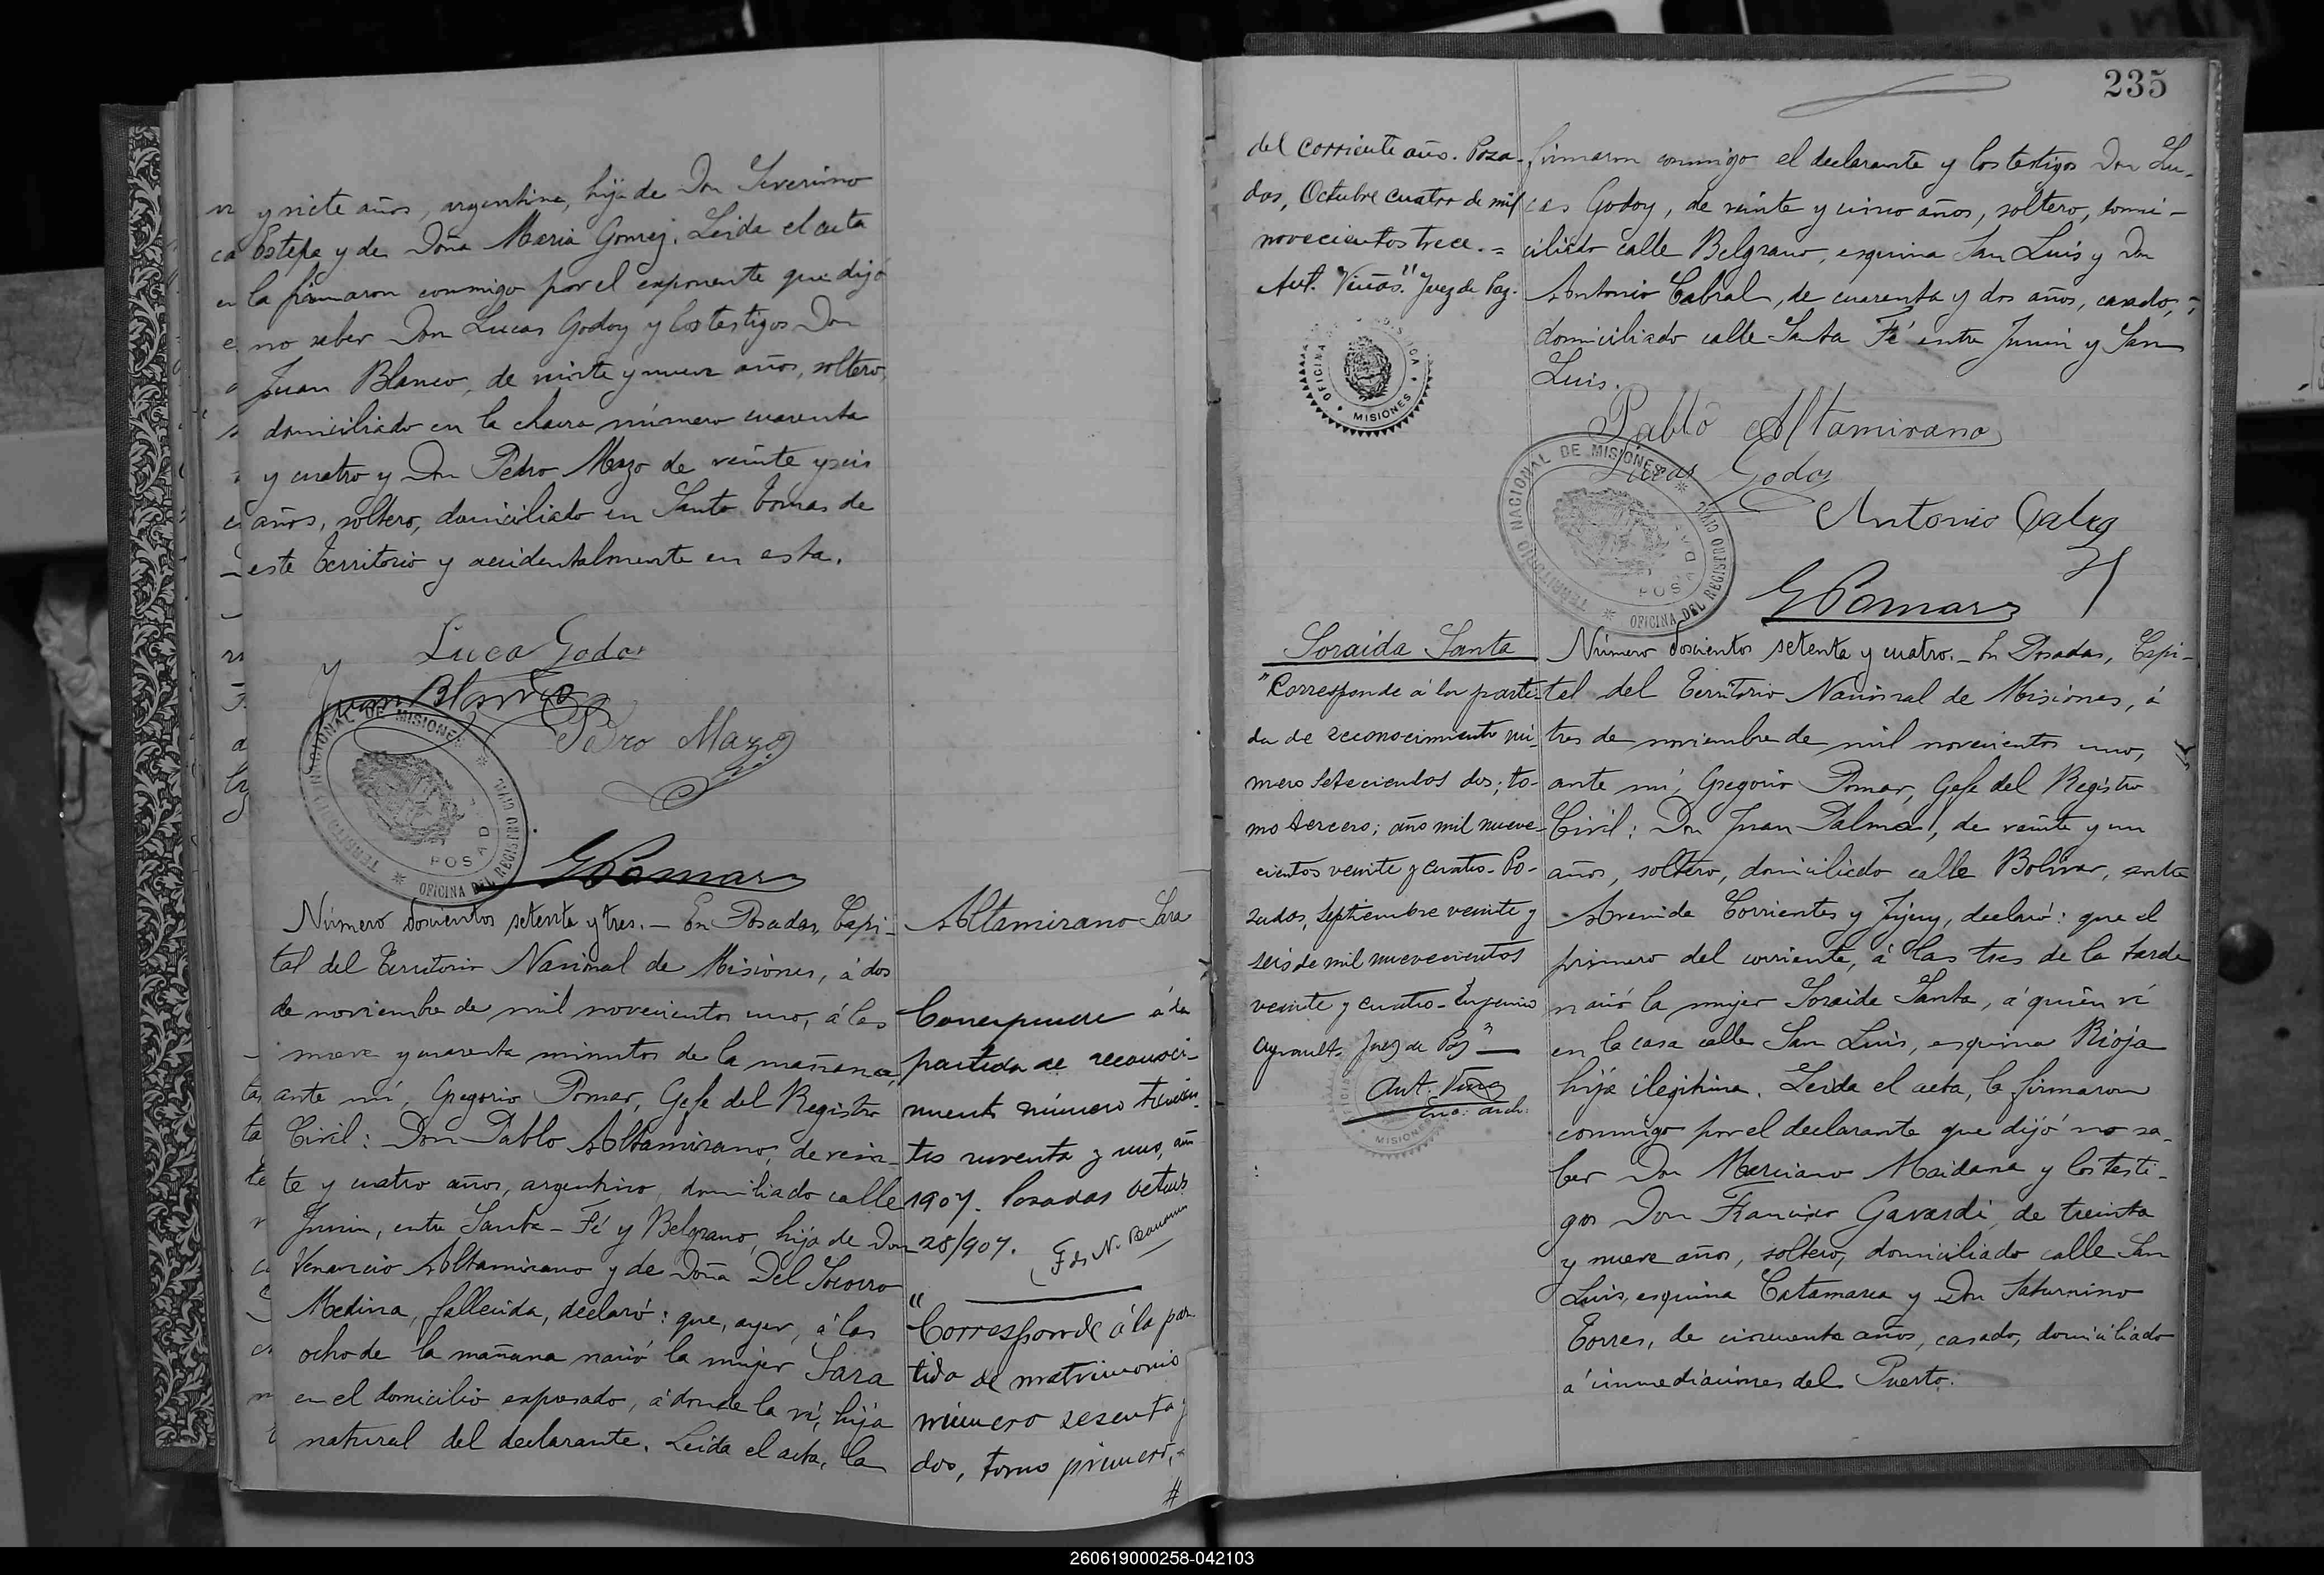 y siete años, argentina, hija de Don Severino
Estepa y de Doña Maria Gomez. Leida el acta
la firmaron conmigo por el exponente que dijó
no saber Don Lucas Godoy y los testigos Don
Juan Blanco, de veinte y nueve años, soltero,
domiciliado en la chacra número cuarenta
y cuatro y Don Pedro Mazo de veinte y seis
años, soltero, domiciliado en Santo Tomas de
este Territorio y accidentalmente en esta.
Luca Godoy
Juan Blanco
Pedro Mazo
TERRITORIO NACIONAL DE MISIONES
OFICINA DEL REGISTRO CIVIL
POSADAS
G Pomar
Número doscientos setenta y tres. _ En Posadas, Capi-
tal del Territorio Nacional de Misiones, á dos
de noviembre de mil novecientos uno, á las
nueve y cuarenta minutos de la mañana,
ante mí, Gregorio Pomar, Gefe del Registro
Civil: Don Pablo Altamirano, de vein-
te y cuatro años, argentino, domiciliado calle
Junin, entre Santa-Fé y Belgrano, hijo de Don
Venancio Altamirano y de Doña Del Socorro
Medina, fallecida, declaró: que, ayer, á las
ocho de la mañana nació la mujer Sara
en el domicilio expresado, á donde la ví, hija
natural del declarante. Leida el acta, la
Altamirano Sara
Corresponde á la
partida de reconoci-
miento número trecien-
tos noventa y uno, año
1907. Posadas Octubre
28/907.
"Corresponde á la par-
tida de matrimonio
número sesenta y
dos, tomo primero,
#
235
del corriente año. Posa-
das, Octubre cuatro de mil
novecientos trece. =
Ant. "Viñas." Juez de Paz.
OFICINA
MISIONES
firmaron conmigo el declarante y los testigos Don Lu-
cas Godoy, de veinte y cinco años, soltero, domi-
ciliado calle Belgrano, esquina San Luis y Don
Antonio Cabral, de cuarenta y dos años, casado,
domiciliado calle Santa Fé entre Junin y San
Luis.
Pablo Altamirano
Lucas Godoy
Antonio Cabral
TERRITORIO NACIONAL DE MISIONES
OFICINA DEL REGISTRO CIVIL
POSADAS
G Pomar
Soraida Santa
"Corresponde á la parti-
da de reconocimiento nú-
mero setecientos dos; to-
mo tercero; año mil nueve-
cientos veinte y cuatro - Po-
sadas, Septiembre veinte y
seis de mil nuevecientos
veinte y cuatro - Eugenio
Juez de Paz"
Ant. Viñas
Enc: arch:
MISIONES
Número doscientos setenta y cuatro. _ En Posadas, Capi-
tal del Territorio Nacional de Misiones, á
tres de noviembre de mil novecientos uno,
ante mí, Gregorio Pomar, Gefe del Registro
Civil: Don Juan Palma, de veinte y un
años, soltero, domiciliado calle Bolivar, entre
Avenida Corrientes y Jujuy, declaró: que el
primero del corriente, á las tres de la tarde
nació la mujer Soraida Santa, á quién ví
en la casa calle San Luis, esquina Rioja
hija ilegitima. Leida el acta, la firmaron
conmigo por el declarante que dijó no sa-
ber Don Marciano Maidana y los testi-
gos Don Francisco Gavardi, de treinta
y nueve años, soltero, domiciliado calle San
Luis, esquina Catamarca y Don Saturnino
Torres, de cincuenta años, casado, domiciliado
á inmediaciones del Puerto.
260619000258-042103